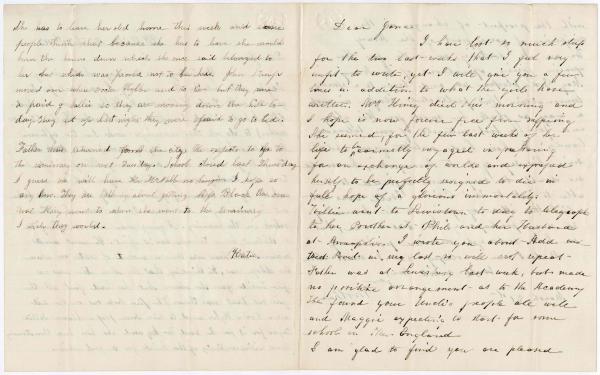 She has to leave her old home this week and some
people think that because she has to leave she would
burn the house down which she once said belonged to
her but which was not to be hers John
moved over and to her but they were
afraid of Katie so they are moving down the hill to-
day. They sit up last night they were afraid to go to bed.
Father has returned from the city he expects to go to
the seminary on next Tuesday. School closed last Thursday
I guess we will have the no longer I hope so
any how. They are all in about getting Miss Black the one
that Mary went to when she went to the Seminary
I wish they would.
Katie.
Dear James
I have lost so much sleep
for the two last weeks that I feel very
unfit to write, yet I will give you a few
lines in addition to what the girls have
written. Mrs Honey died this morning and
I hope is now forever free from suffering
She seemed for the few last weeks of her
life to be earnestly engaged in preparing
for an exchange of worlds and expressed
herself to be perfectly resigned to die in
full hope of a glorious immortality.
Tillie went to Lewistown to day to telegraph
to her Brother at Phila and her Husband
at Annapolis. I wrote you about Add
in my last so will not repeat
Father was at last week, but made
no positive arrangement as to the Academy
He found your Uncle's people all well
and Maggie expecting to start for some
school in New England
I am glad to find you are pleased